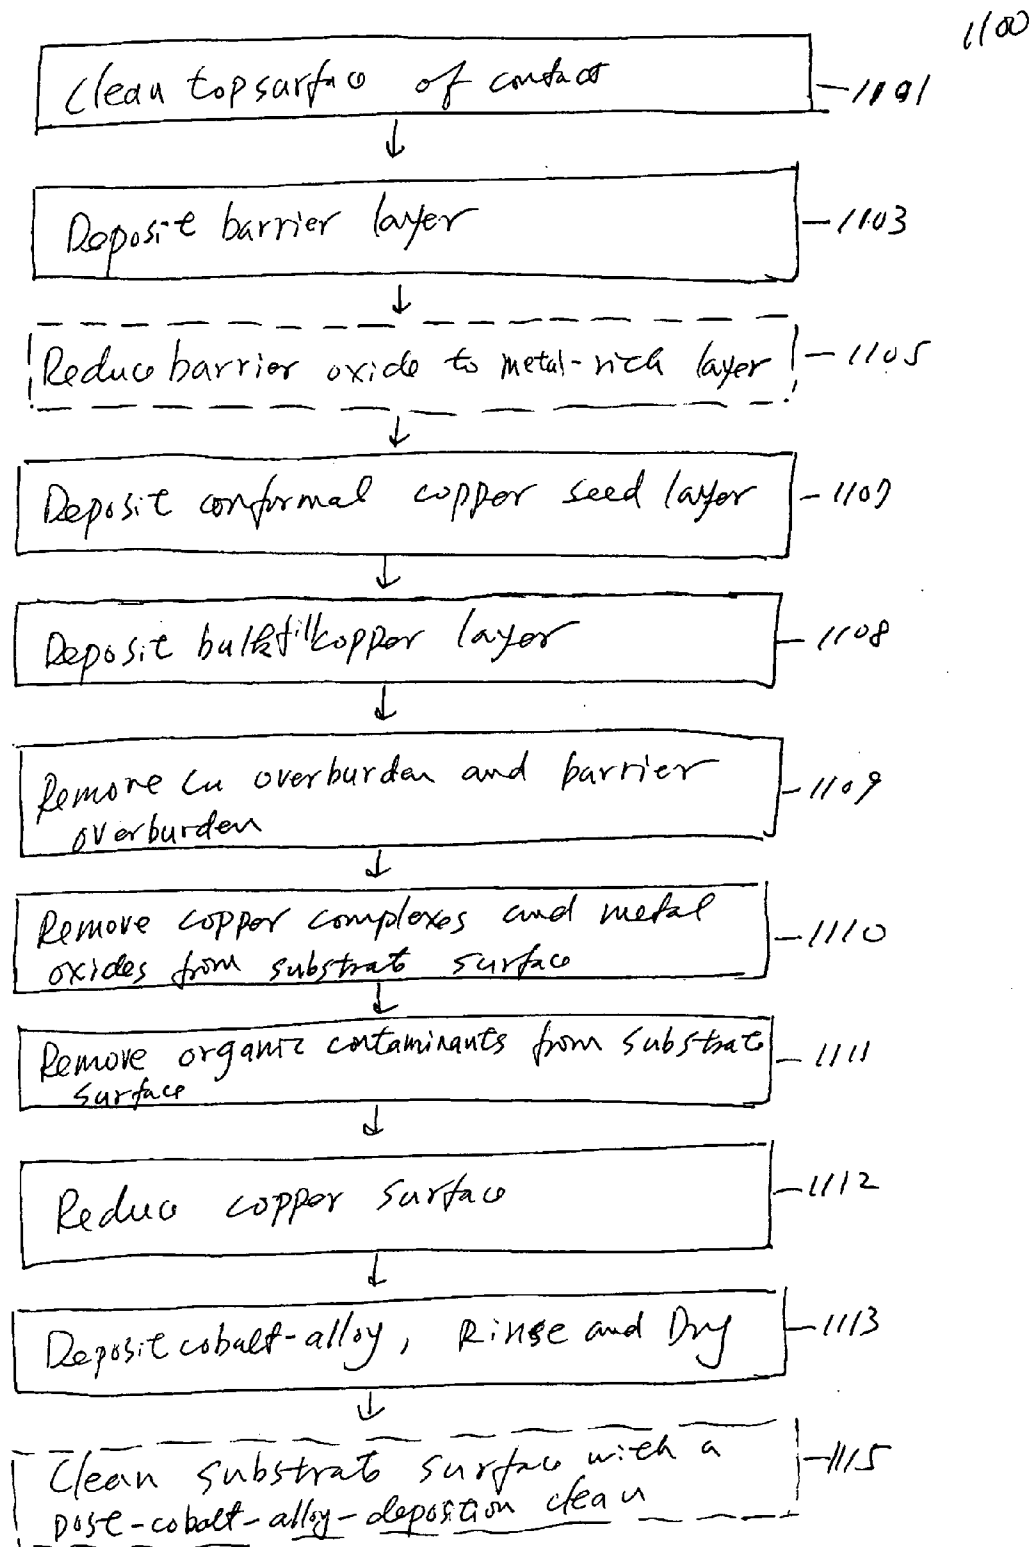 1100
Clean top surface of contact
1101
Deposit barrier layer
1103
Reduce barrier oxide to metal-rich layer
1105
Deposit conformal copper seed layer
1107
Deposit bulkfill copper layer
1108
Remove Cu overburden and barrier
overburden
1109
Remove copper complexes and metal
oxides from substrate surface
1110
Remove organic contaminants from substrate
surface
1111
Reduce copper surface
1112
Deposit cobalt-alloy, Rinse and Dry
1113
Clean substrate surface with a
post-cobalt-alloy-deposition clean
1115